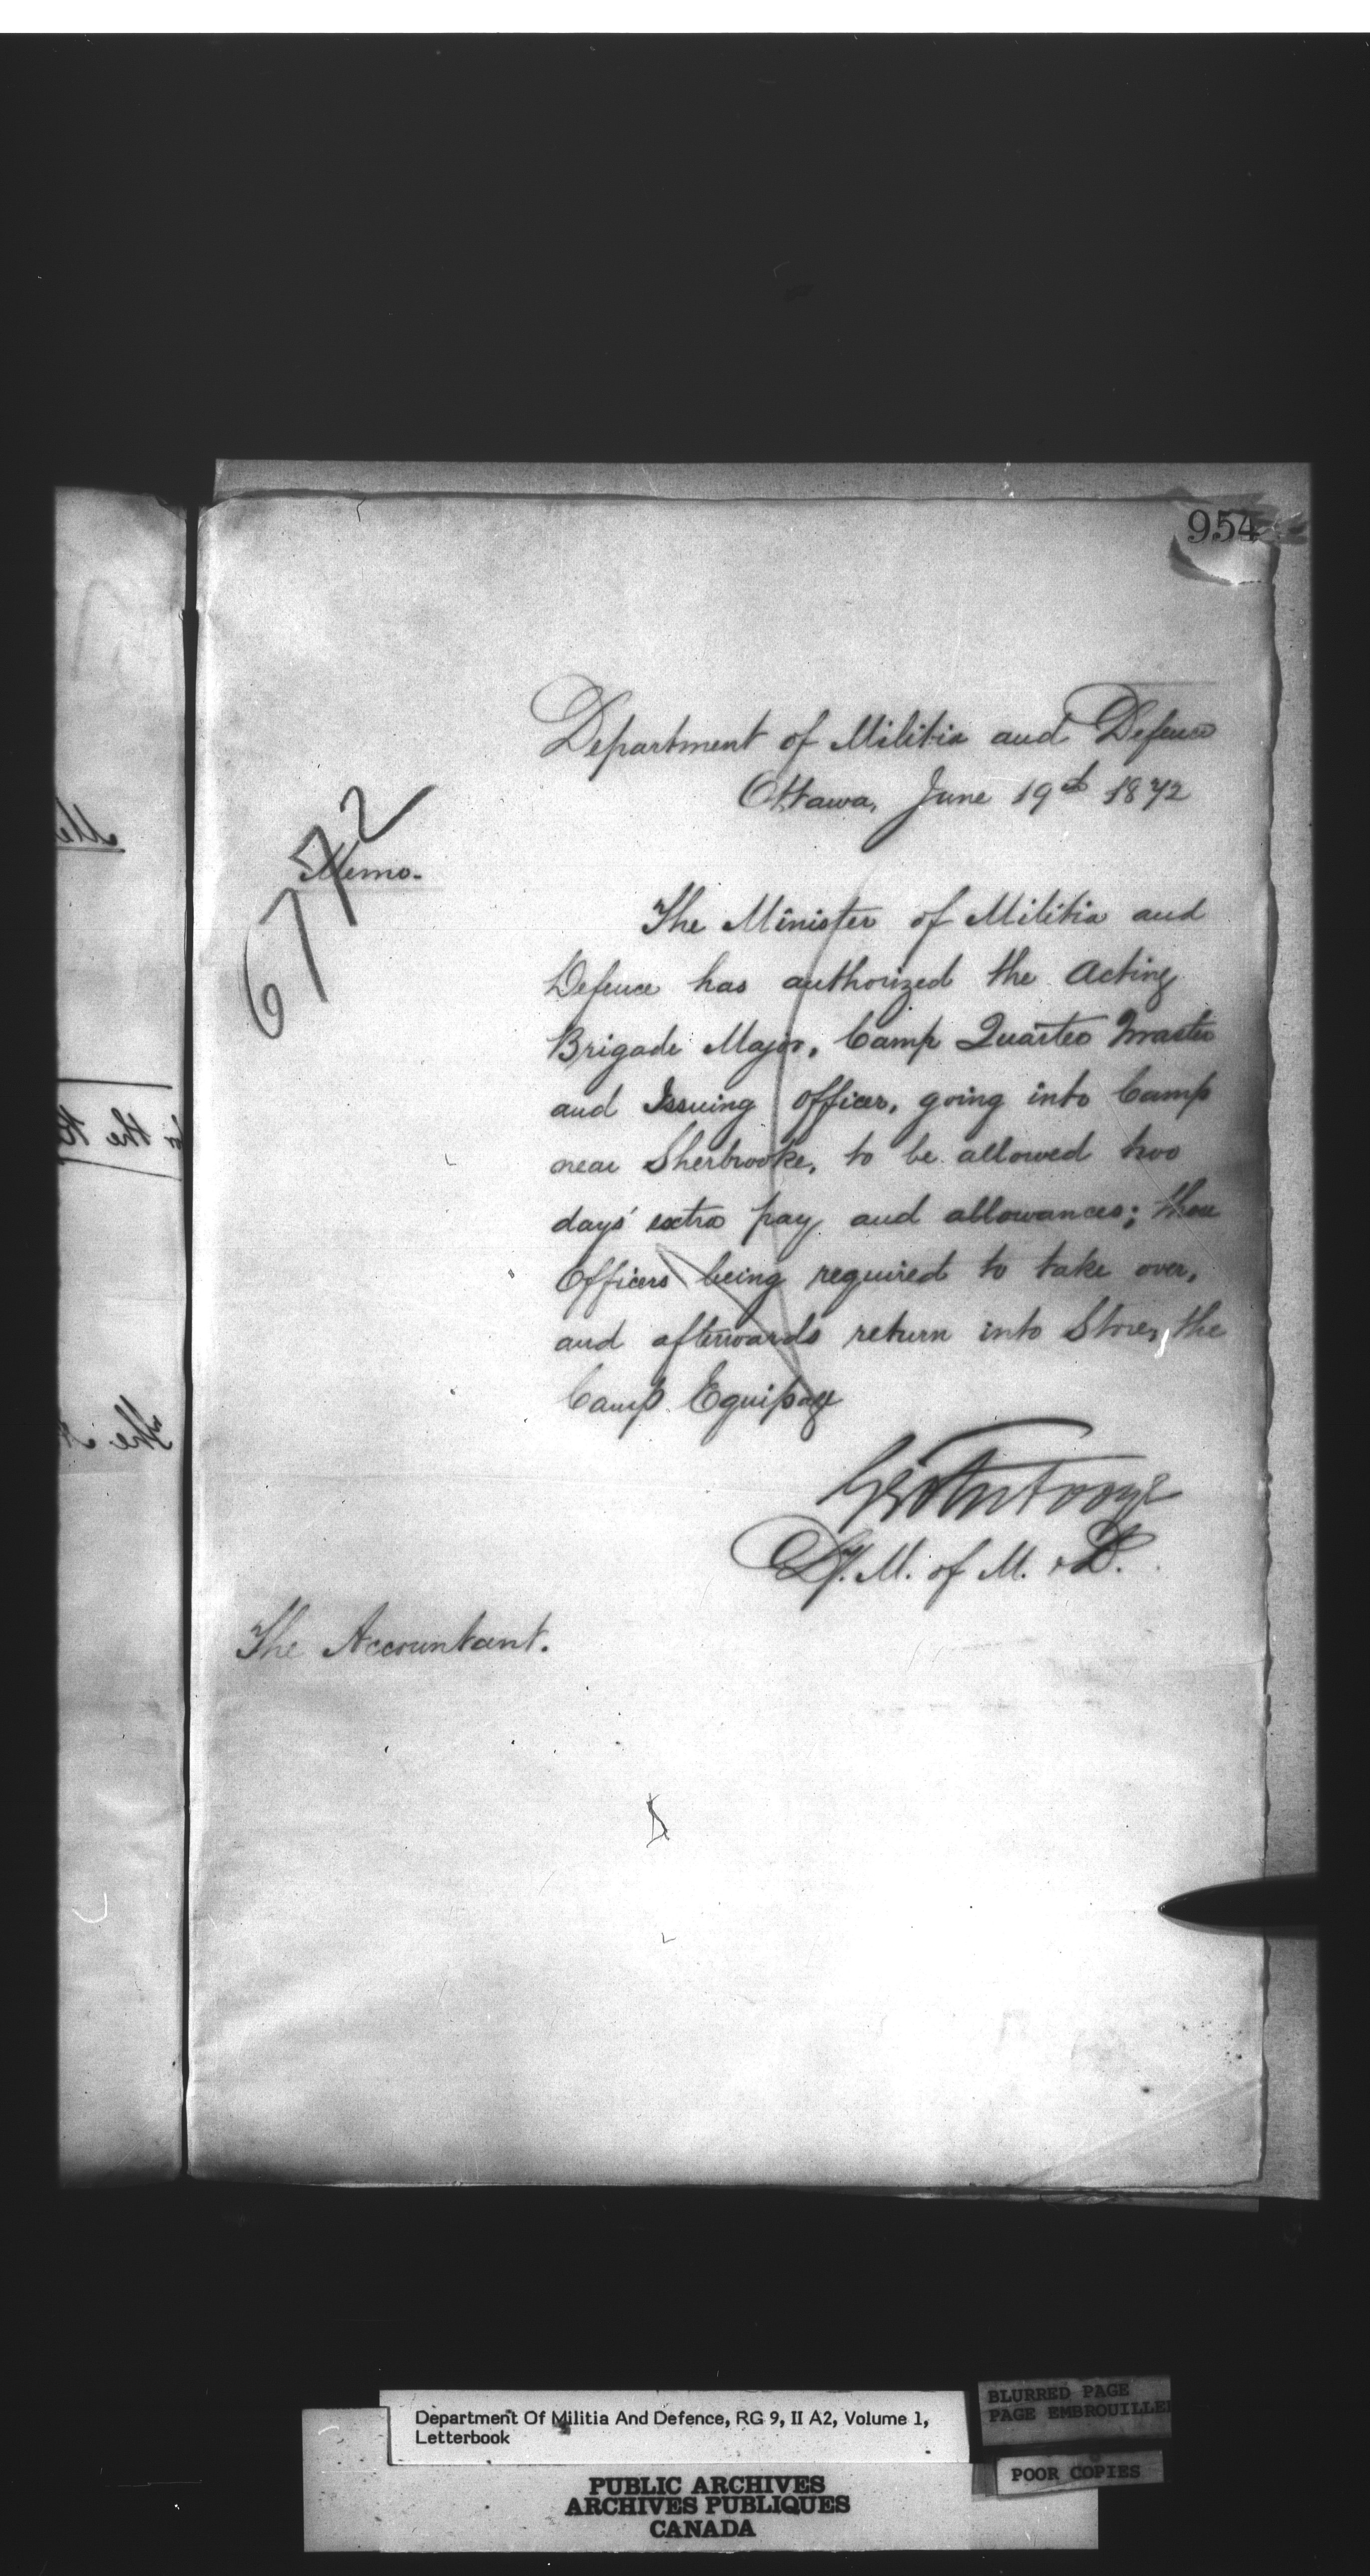 954
Department of Militia and Defence
Ottawa, June 19th 1872
6772
Memo.
The Minister of Militia and
Defence has authorized the Acting
Brigade Major, Camp Quarter Master
and Issuing Officer, going into Camp
near Sherbrooke, to be allowed two
days' extra pay and allowances; these
Officers being required to take over,
and afterwards return into Store, the
Camp Equipage
Dy. M. of M. & D.
The Accountant.
Department Of Militia And Defence, RG 9, II A2, Volume 1,
Letterbook
BLURRED PAGE
PAGE EMBROUILLEE
POOR COPIES
PUBLIC ARCHIVES
ARCHIVES PUBLIQUES
CANADA